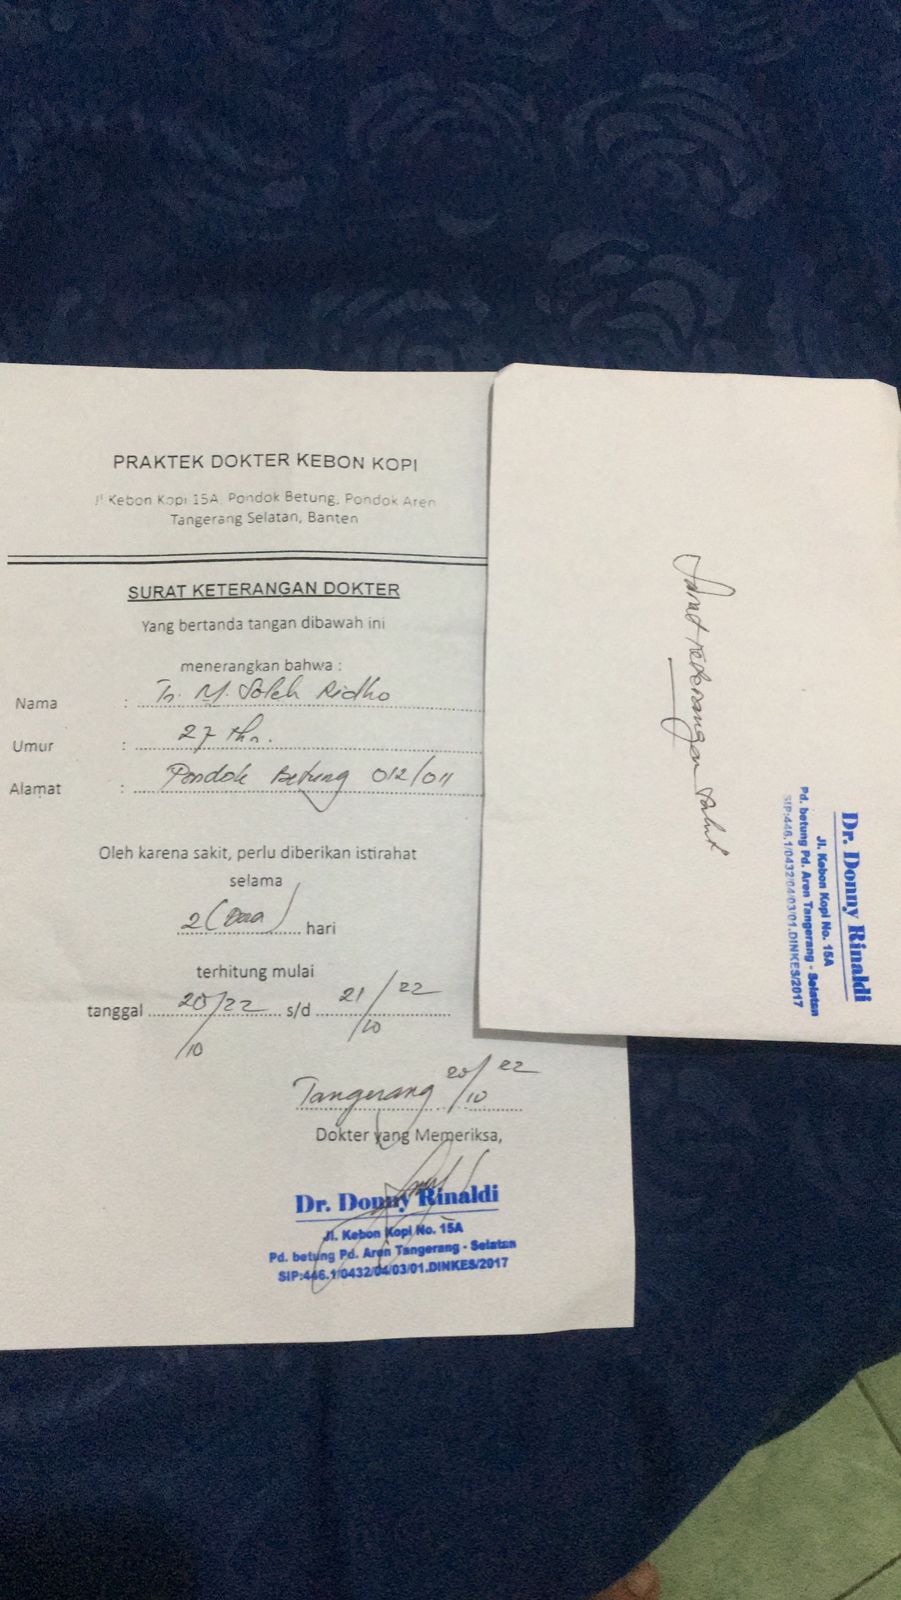 PRAKTEK DOKTER KEBON KOPI
Jl Kebon Kopi 15A, Pondok Betung, Pondok Aren
Tangerang Selatan, Banten
SURAT KETERANGAN DOKTER
Yang bertanda tangan dibawah ini
menerangkan bahwa :
Nama : Tn. M. Soleh Ridho
Umur : 27 thn.
Alamat : Pondok Betung 012/011
Oleh karena sakit, perlu diberikan istirahat
selama
2 (Dua) hari
terhitung mulai
tanggal 20/10/22 s/d 21/10/22
Tangerang 20/10 22
Dokter yang Memeriksa,
Dr. Donny Rinaldi
Jl. Kebon Kopi No. 15A
Pd. betung Pd. Aren Tangerang - Selatan
SIP:446.1/0432/04/03/01.DINKES/2017
Surat keterangan sakit
Dr. Donny Rinaldi
Jl. Kebon Kopi No. 15A
Pd. betung Pd. Aren Tangerang - Selatan
SIP:446.1/0432/04/03/01.DINKES/2017